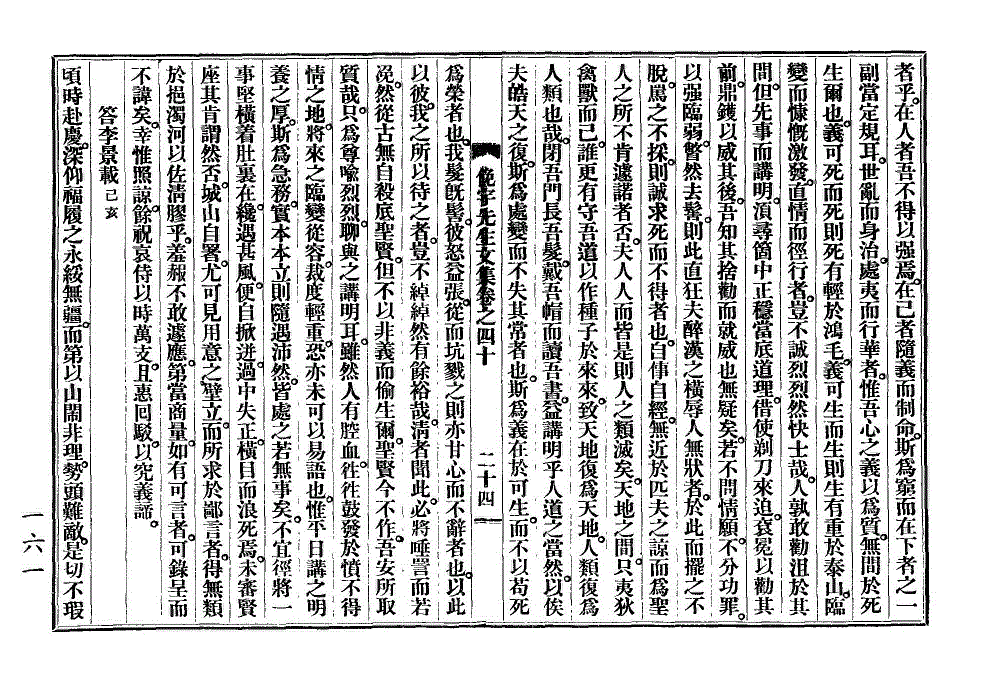 者乎。在人者吾不得以强焉。在己者隨義而制命。斯爲窮而在下者之一
副當定規耳。世亂而身治。處夷而行華者。惟吾心之義以爲質。無間於死
生爾也。義可死而死則死有輕於鴻毛。義可生而生則生有重於泰山。臨
變而慷慨激發。直情而徑行者。豈不誠烈烈然快士哉。人孰敢勸沮於其
間。但先事而講明。湏尋箇中正穩當底道理。借使剃刀來迫。袞冕以勸其
前。鼎鑊以威其後。吾知其捨勸而就威也無疑矣。若不問情願。不分功罪。
以强臨弱。瞥然去髻。則此直狂夫醉漢之橫辱人無狀者。於此而擺之不
脫。罵之不採。則誠求死而不得者也。白俥自經。無近於匹夫之諒而爲聖
人之所不肯遽諾者否。夫人人而皆是則人之類滅矣。天地之間。只夷狄
禽獸而已。誰更有守吾道以作種子於來來。致天地復爲天地。人類復爲
人類也哉。閉吾門長吾髮。戴吾帽而讀吾書。益講明乎人道之當然。以俟
夫皓天之復。斯爲處變而不失其常者也。斯爲義在於可生。而不以苟死
俛宇先生文集卷之四十 二十四
爲榮者也。我髮旣髡。彼怒益張。從而坑戮之則亦甘心而不辭者也。以此
以彼。我之所以待之者。豈不綽綽然有餘裕哉。淸者聞此。必將唾詈而若
浼。然從古無自殺底聖賢。但不以非義而偷生爾。聖賢今不作。吾安所取
質哉。只爲尊喩烈烈。聊與之講明耳。雖然人有腔血。往往鼓發於憤不得
情之地。將來之臨變從容。裁度輕重。恐亦未可以易語也。惟平日講之明
養之厚。斯爲急務。實本本立則隨遇沛然。皆處之若無事矣。不宜徑將一
事堅橫着肚裏在。纔遇甚風。便自掀迸。過中失正。橫目而浪死焉。未審賢
座其肯謂然否。城山自署。尤可見用意之壁立。而所求於鄙言者。得無類
於挹濁河以佐淸膠乎。羞赧不敢遽應。第當商量。如有可言者。可錄呈而
不諱矣。幸惟照諒。餘祝哀侍以時萬支。且惠回駁。以究義諦。
答李景載 己亥
頃時赴慶。深仰福履之永綏無疆。而第以山鬧非理。勢頭難敵。是切不瑕
一六一